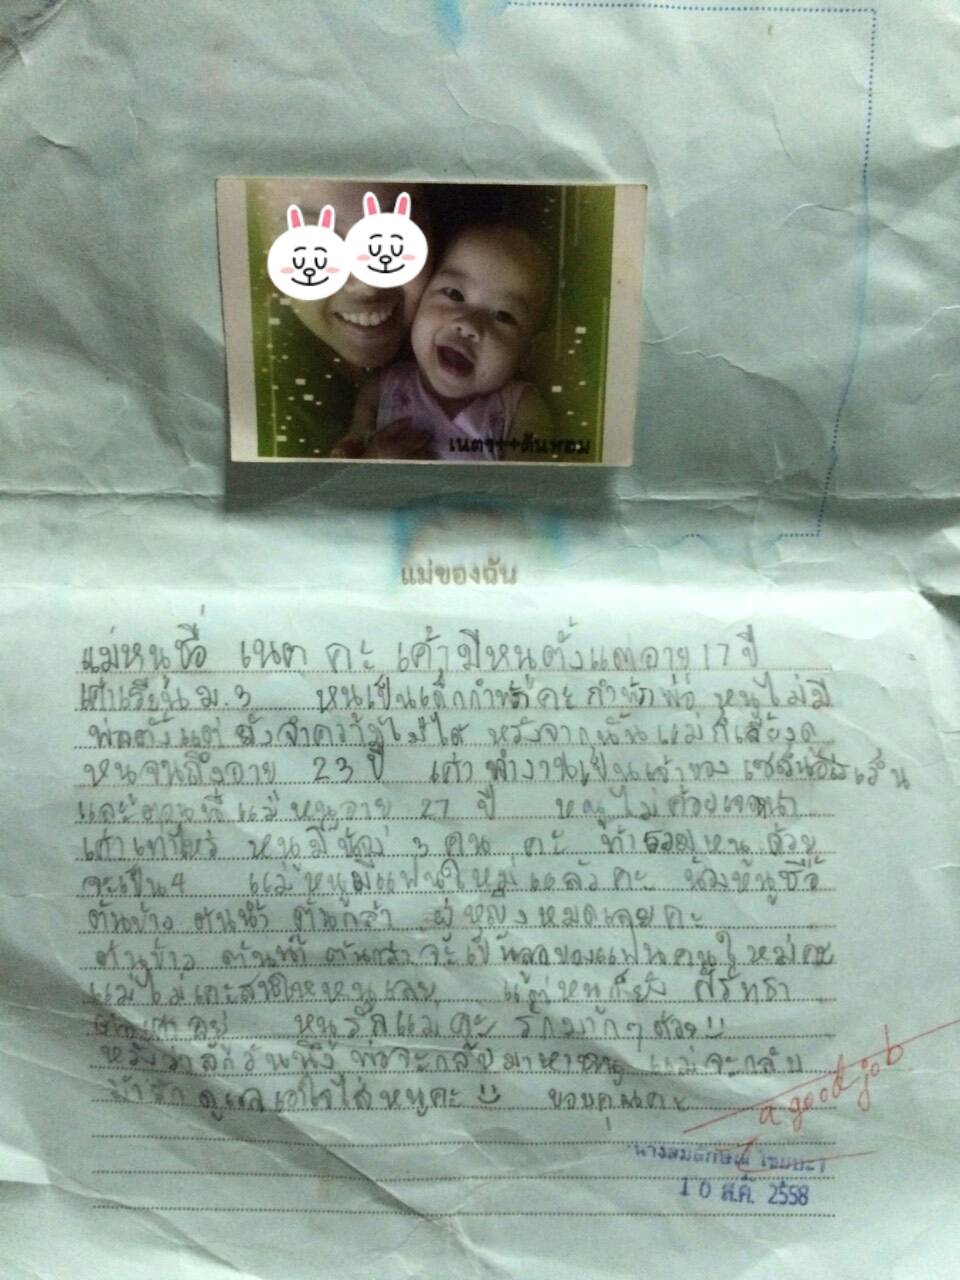 เนตร++ต้นหอม
แม่ของฉัน
แม่หนูชื่อ เนต คะ เค้ามีหนูตั้งแตอายุ 17 ปี
เค้าเรียน ม.3 หนูเป็นเด็กกำพ้าคะ กำพ้าพ่อ หนูไม่มี
พ่อตั้งแต่ ยังจำความไม่ได้ หลังจากนั้นแม่ก็เลี้ยงดู
หนูจนถึงอายุ 23 ปี เค้าทำงานเป็นเจ้าของ
และตอนนี้แม่หนูอายุ 27 ปี หนูไม่ค้อยเจอหน้า
เค้าเท่าไหร่ หนูมีน้อง 3 คน คะ ถ้ารวมหนูด้วย
จะเป็น 4 แม่หนูมีแฟนใหม่แล้วคะ น้องหนูชื่อ
ต้นข้าว ต้นน้ำ ต้นกล้า ผู้หญิงหมดเลยคะ
ต้นข้าว ต้นน้ำ ต้นกล้า จะเป็นลูกของแฟนคนใหม่คะ
แม่ไม่เคย หนูเลย แต่หนูก็ยัง
เค้าอยู่ หนูรักแม่คะ รักมากๆด้วย
หวังว่าสักวันนึง พ่อจะกลับมาหาหนู แม่จะกลับ
มารัก ดูแลเอาใจใส่หนูคะ ขอบคุณคะ
a good job
10 ส.ค. 2558